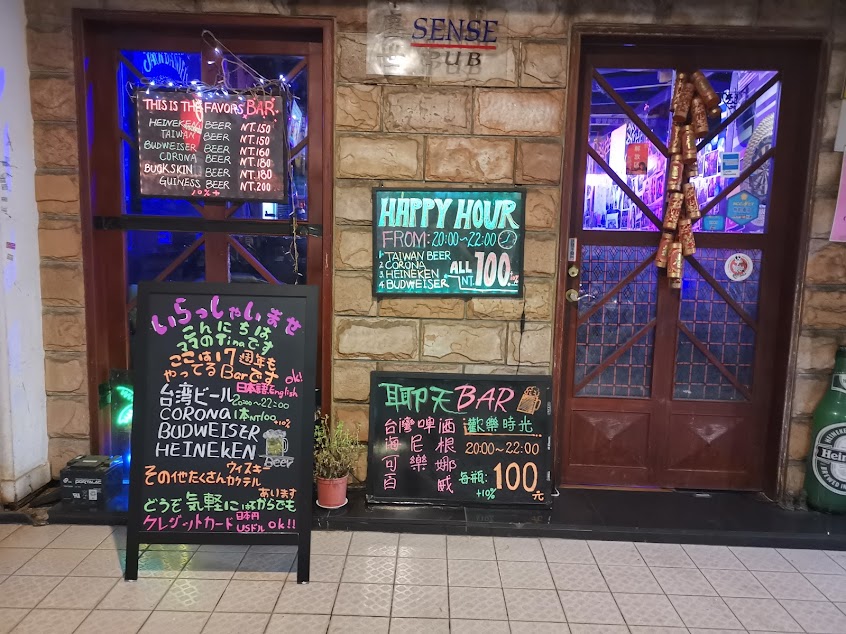 SENSE
PUB
THIS IS THE FAVORS BAR.
HEINEKEN BEER NT.150
TAIWAN BEER NT.150
BUDWEISER BEER NT.160
CORONA BEER NT.180
BUCKSKIN BEER NT.180
GUINESS BEER NT.200
10%+
HAPPY HOUR
FROM: 20:00~22:00
1. TAIWAN BEER
2. CORONA
3. HEINEKEN
4. BUDWEISER
ALL NT. 100
いらっしゃいませ
こんにちは
ママのTinaです
ここは17週年も
やってるBarです
ok!
日本語.English
台湾ビール 20:00~22:00
CORONA 1本NT100 +10%
BUDWEISER
HEINEKEN
Beer
ウィスキー
その他たくさんカクテル
あります
どうぞ気軽に
からでも
クレジットカード 日本円 USドル ok!!
聊天BAR
台灣啤酒 歡樂時光
海尼根 20:00~22:00
可樂娜 每瓶: 100元
百威 +10%
Hein